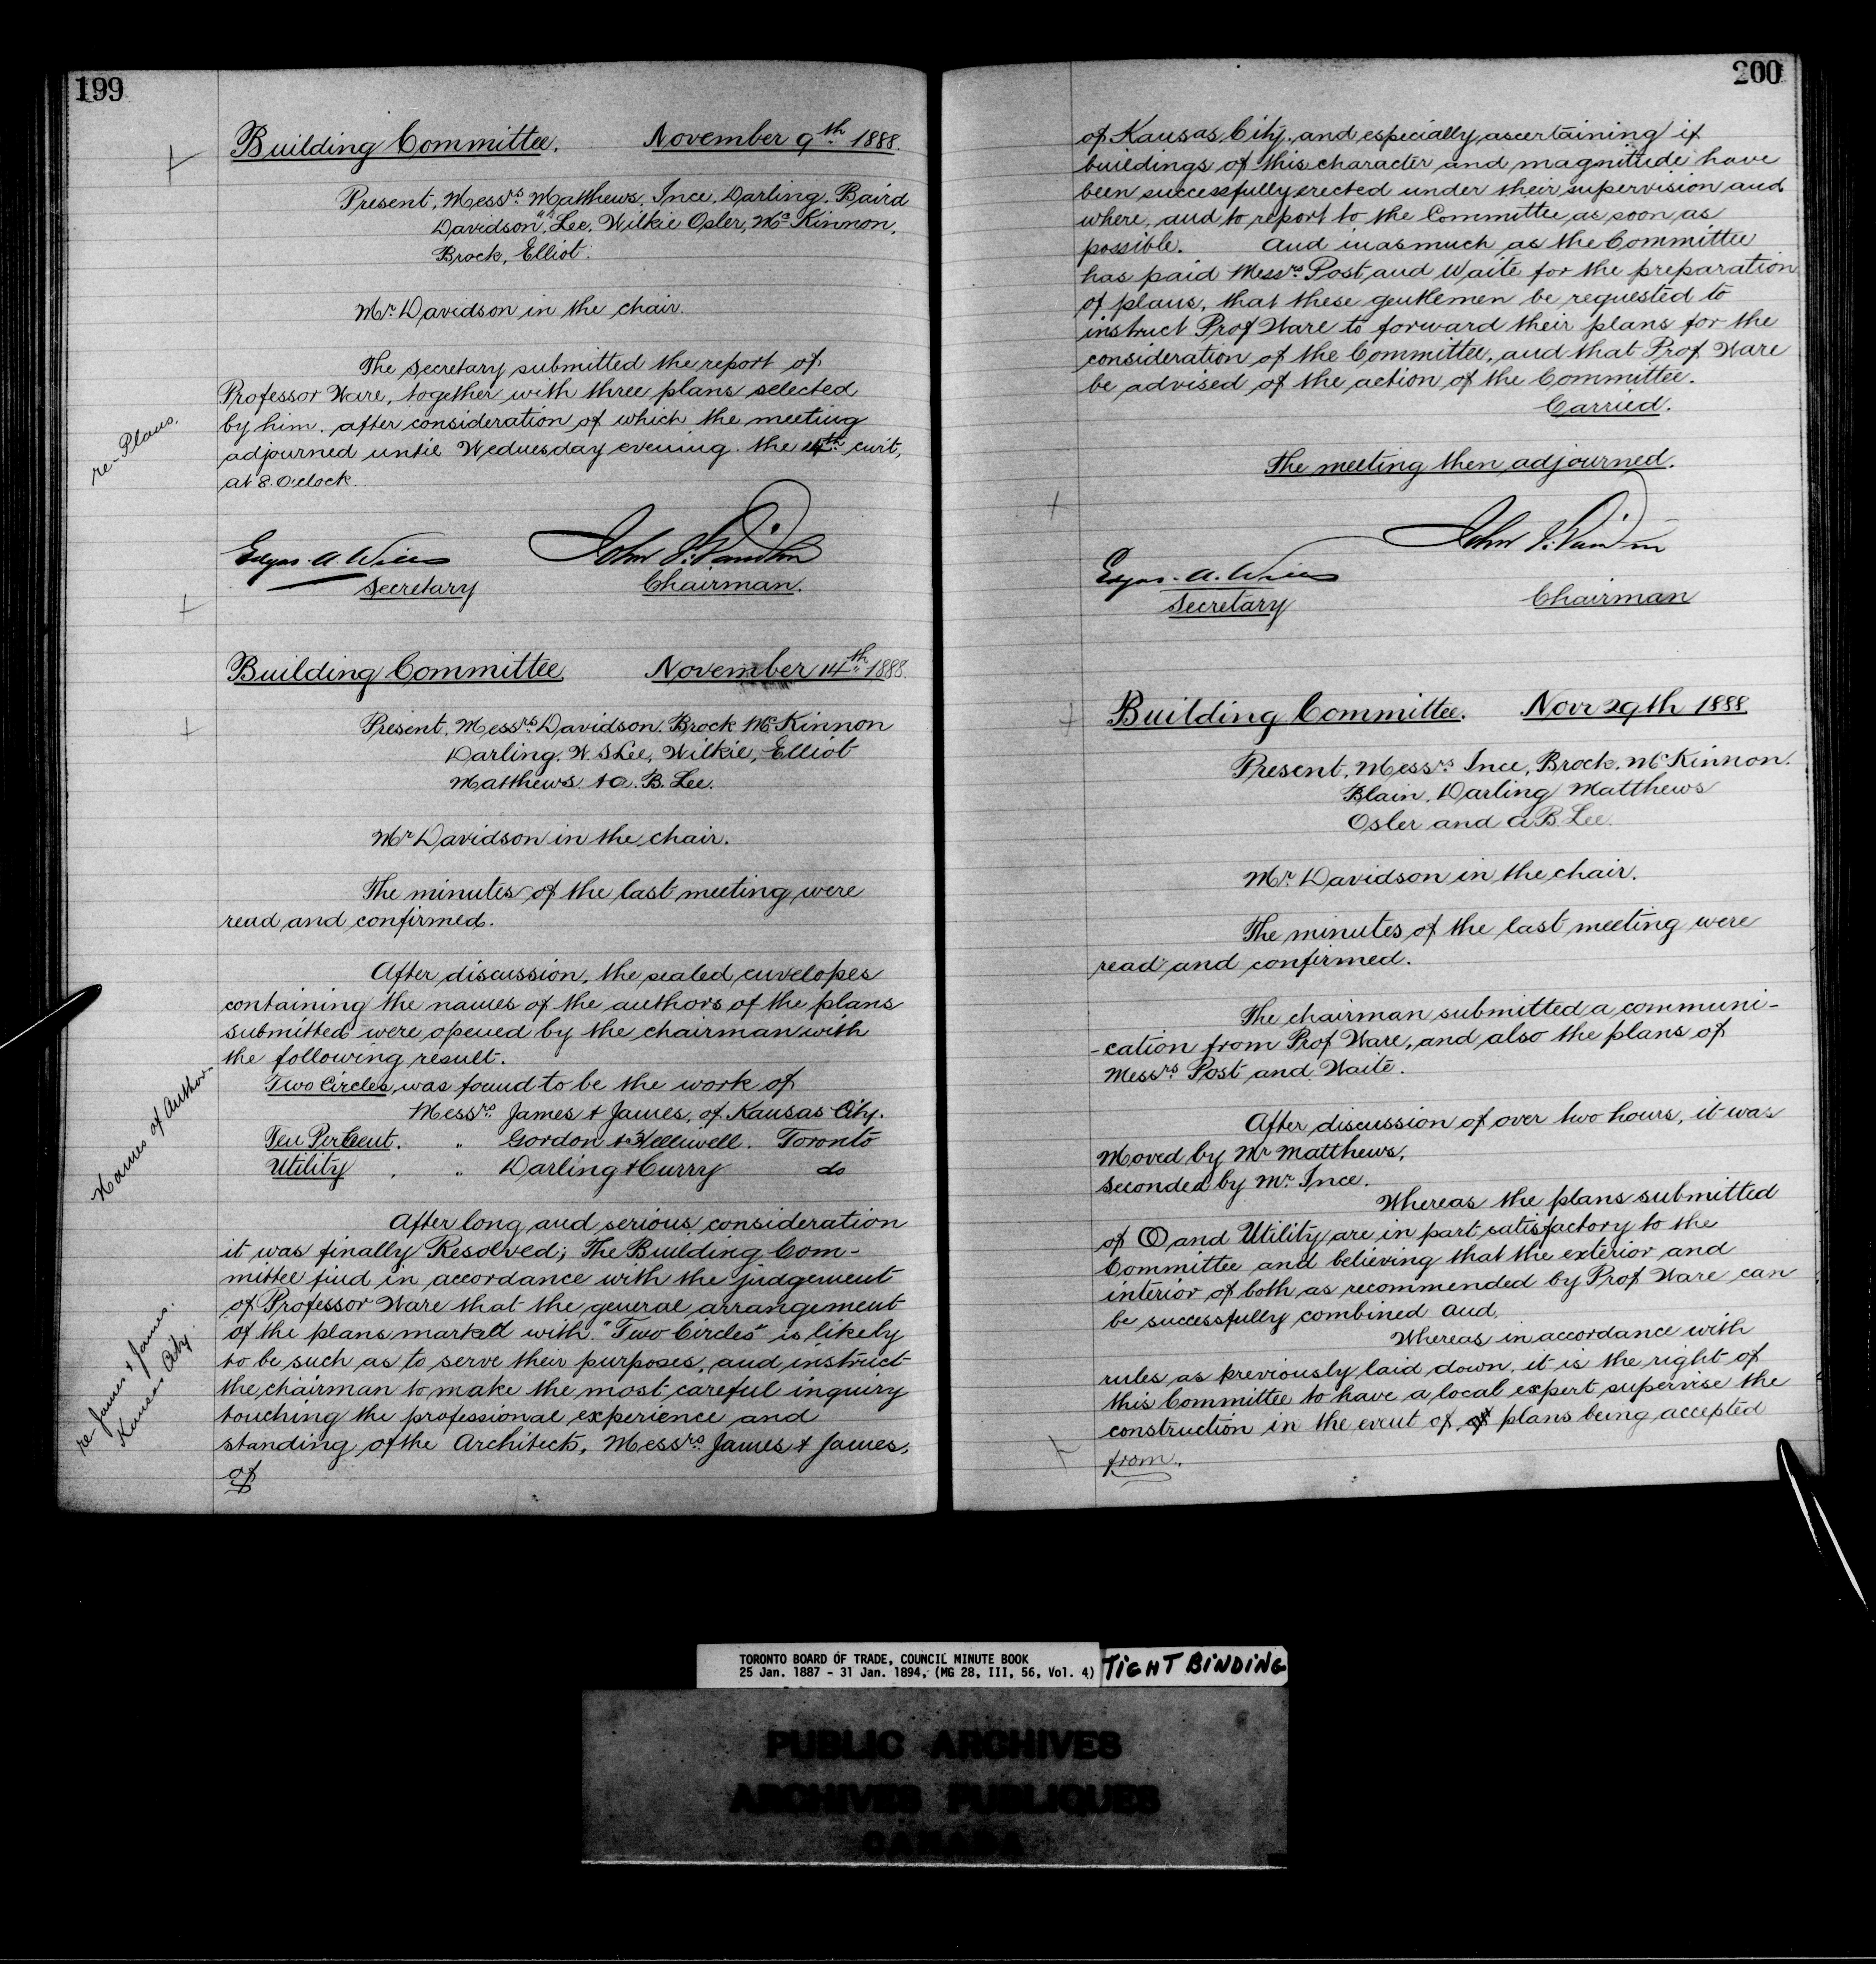 199
Building Committee. November 9th 1888.
Present, Messrs. Matthews, Ince, Darling, Baird
Davidson, Lee, Wilkie Osler, McKinnon,
Brock, Elliot.
Mr. Davidson in the chair.
The secretary submitted the report of
Professor Ware, together with three plans selected
by him. after consideration of which the meeting
adjourned until Wednesday evening. the 14th curt,
at 8. O'clock.
re-Plans.
Edgar. A. Wills
Secretary
John I. Davidson
Chairman.
Building Committee. November 14th 1888.
Present, Messrs. Davidson. Brock McKinnon
Darling. W. S Lee, Wilkie, Elliot
Matthews. & A. B. Lee.
Mr Davidson in the chair.
The minutes of the last meeting were
read and confirmed.
After discussion, the sealed envelopes
containing the names of the authors of the plans
submitted were opened by the chairman with
the following result.
Names of Author-
Two Circles, was found to be the work of
Messrs. James & James, of Kansas City.
Ten Per Cent. " Gordon & Helliwell. Toronto
Utility , " Darling & Curry do
After long and serious consideration
it was finally Resolved; The Building Com-
mittee find in accordance with the judgement
of Professor Ware that the general arrangement
of the plans marked with "Two Circles" is likely
to be such as to serve their purposes, and instruct
the chairman to make the most careful inquiry
touching the professional experience and
standing of the Architects, Messrs. James & James,
of
re-James & James.
Kansas City.
200
of Kansas City, and especially ascertaining if
buildings of this character and magnitude have
been successfully erected under their supervision and
where, and to report to the Committee as soon as
possible. And in as much as the Committee
has paid Messrs. Post and Waite for the preparation
of plans, that these gentlemen be requested to
instruct Prof Ware to forward their plans for the
consideration of the Committee, and that Prof Ware
be advised of the action of the Committee.
Carried.
The meeting then adjourned.
Edgar. A. Wills
Secretary
John I. Davidson
Chairman
Building Committee. Novr 29th 1888
Present, Messrs Ince, Brock. McKinnon.
Blain, Darling Matthews
Osler and A B. Lee.
Mr. Davidson in the chair.
The minutes of the last meeting were
read and confirmed.
The chairman submitted a communi-
-cation from Prof Ware, and also the plans of
Messrs Post and Waite.
After discussion of over two hours, it was
Moved by Mr Matthews,
Seconded by Mr. Ince.
Whereas the plans submitted
of OO and Utility are in part satisfactory to the
Committee and believing that the exterior and
interior of both, as recommended by Prof Ware can
be successfully combined and,
Whereas in accordance with
rules, as previously laid down, it is the right of
this Committee to have a local expert supervise the
construction in the event of plans being accepted
from,
TORONTO BOARD OF TRADE, COUNCIL MINUTE BOOK
25 Jan. 1887 - 31 Jan. 1894, (MG 28, III, 56, Vol. 4)
TIGHT BINDING
PUBLIC ARCHIVES
ARCHIVES PUBLIQUES
CANADA